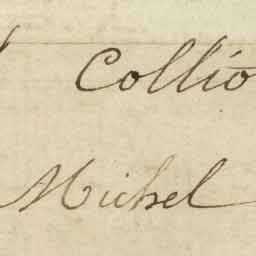 Collio
Michel